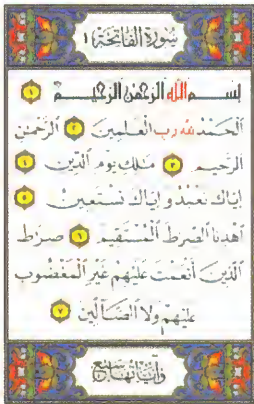 سورة الفاتحة ١
بسم الله الرحمن الرحيم ١
الحمد لله رب العلمين ٢ الرحمن
الرحيم ٣ ملك يوم الدين ٤
إياك نعبد وإياك نستعين ٥
اهدنا الصرط المستقيم ٦ صرط
الذين أنعمت عليهم غير المغضوب
عليهم ولا الضالين ٧
وآياتها سبع